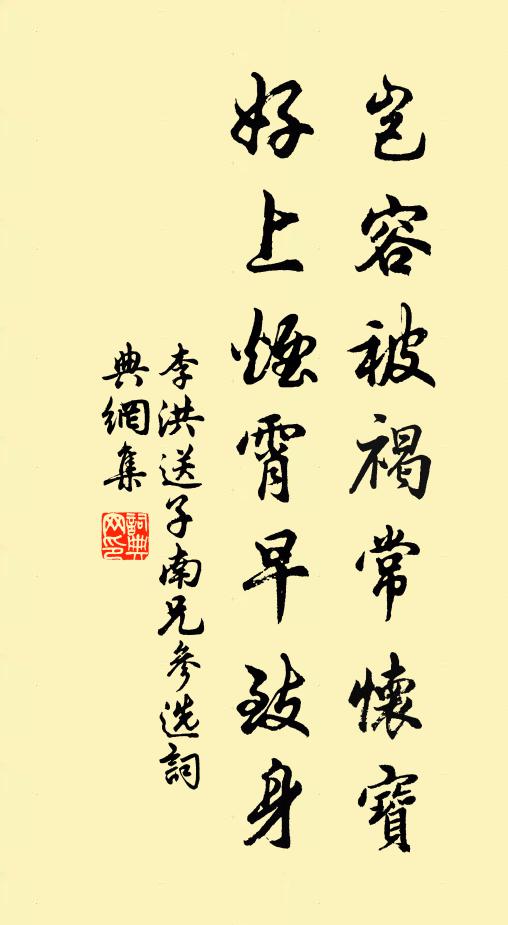 豈容被褐常懷寶
好上煙霄早致身
李洪送子南兄參选詞
典網集
詞典網印